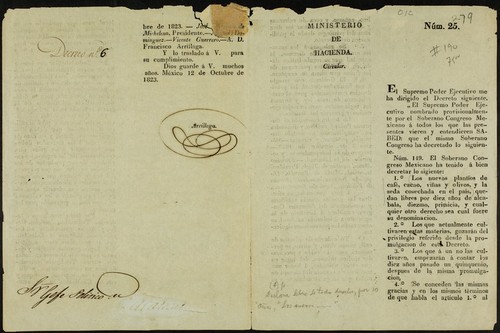 bre de 1823.
Presidente.
Vicente Guerrero.—A. D.
Francisco Arrillaga.
Y lo traslado á V. para
su cumplimiento.
Dios guarde á V. muchos
años. México 12 de Octubre de
1823.
Arrillaga.
6
MINISTERIO
DE
HACIENDA.
Circular.
Núm. 25.
279
#190
El Supremo Poder Ejecutivo me
ha dirigido el Decreto siguiente.
„El Supremo Poder Ejecutivo
nombrado provisionalmente
por el Soberano Congreso Mexicano
á todos los que las presentes
vieren y entendieren SABED:
que el mismo Soberano
Congreso ha decretado lo siguiente.
Núm. 119. El Soberano Congreso
Mexicano ha tenido á bien
decretar lo sigiente:
1.º Los nuevos plantíos de
café, cacao, viñas y olivos, y la
seda cosechada en el pais, quedan
libres por diez años de alcabala,
diezmo, primicia, y cualquier
otro derecho sea cual fuere
su denominacion.
2.º Los que actualmente cultivaren
estas materias, gozarán del
privilegio referido desde la promulgacion
de este Decreto.
3.º Los que á un no las cultivaren,
empezarán á contar los
diez años pasado un quinquenio,
despues de la misma promulgacion.
4.º Se conceden las mismas
gracias y en los mismos términos
de que habla el artículo 1.º al